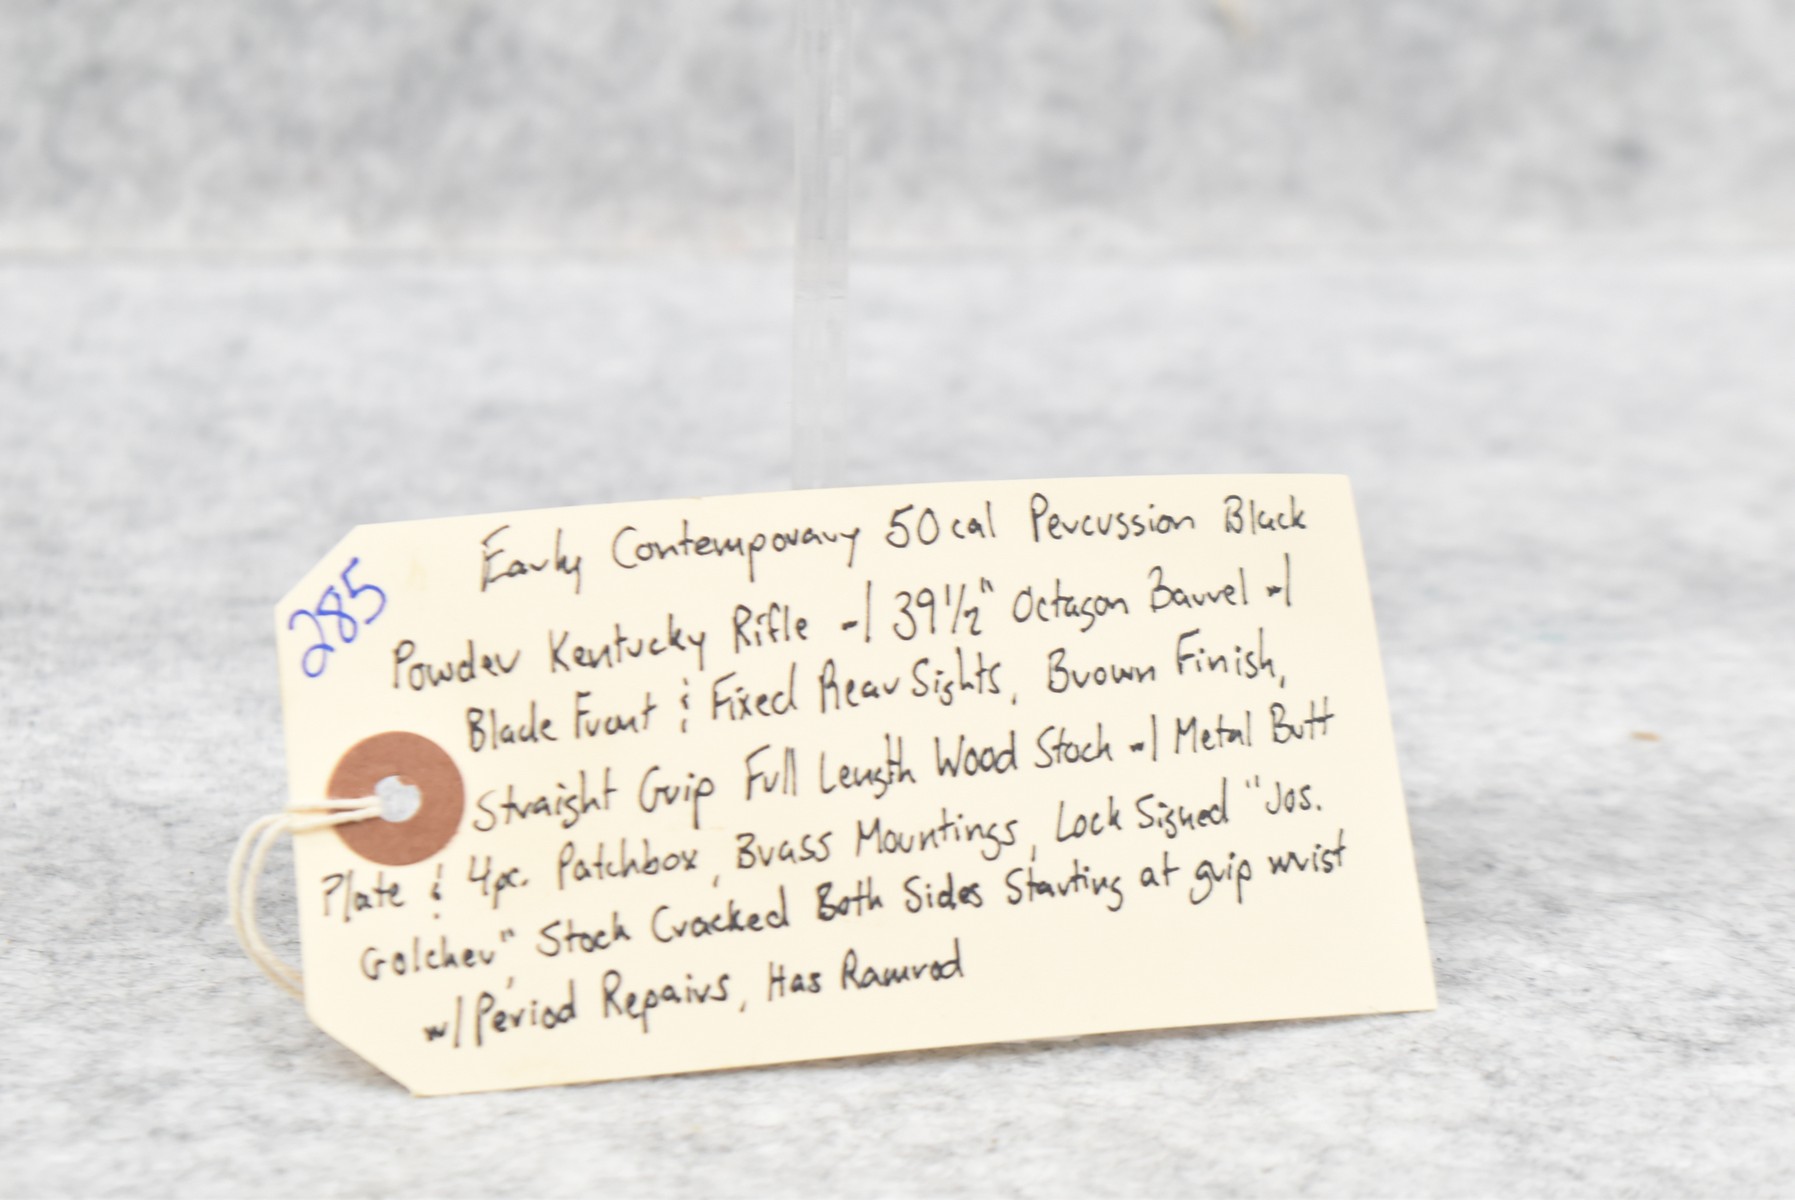 285
Early Contemporary 50 cal Percussion Black
Powder Kentucky Rifle w/ 39 1/2" Octagon Barrel w/
Blade Front & Fixed Rear Sights, Brown Finish,
Straight Grip Full Length Wood Stock w/ Metal Butt
Plate & 4pc. Patchbox, Brass Mountings, Lock Signed "Jos.
Golcher", Stock Cracked Both Sides Starting at grip wrist
w/ Period Repairs, Has Ramrod